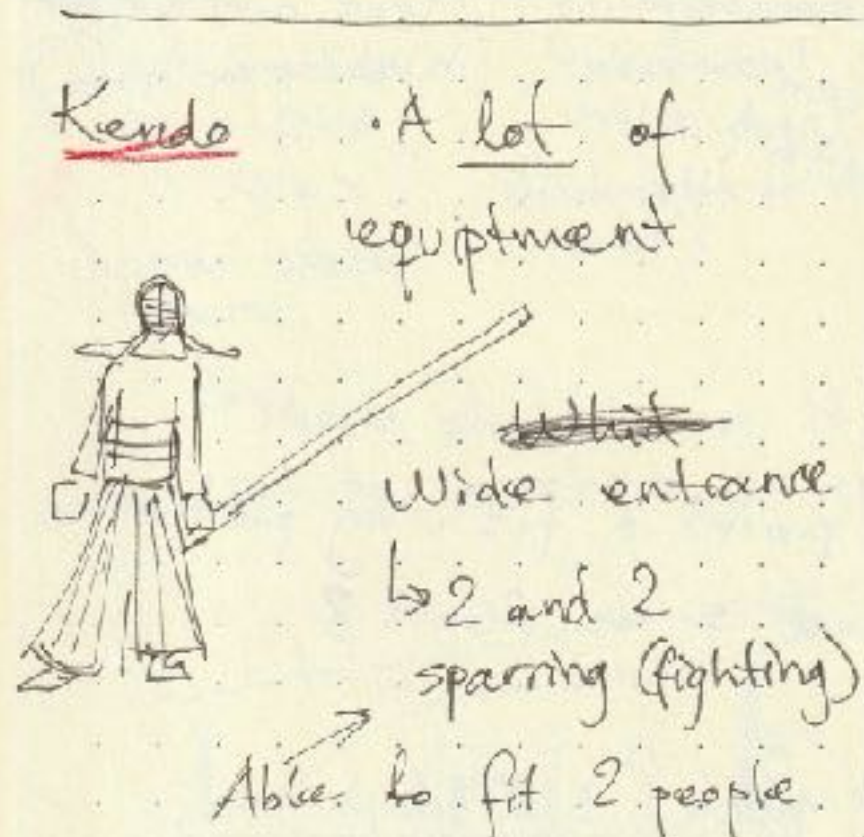 Kendo
· A lot of
equiptment
Wide entrance
↳ 2 and 2
sparring (fighting)
Able to fit 2 people